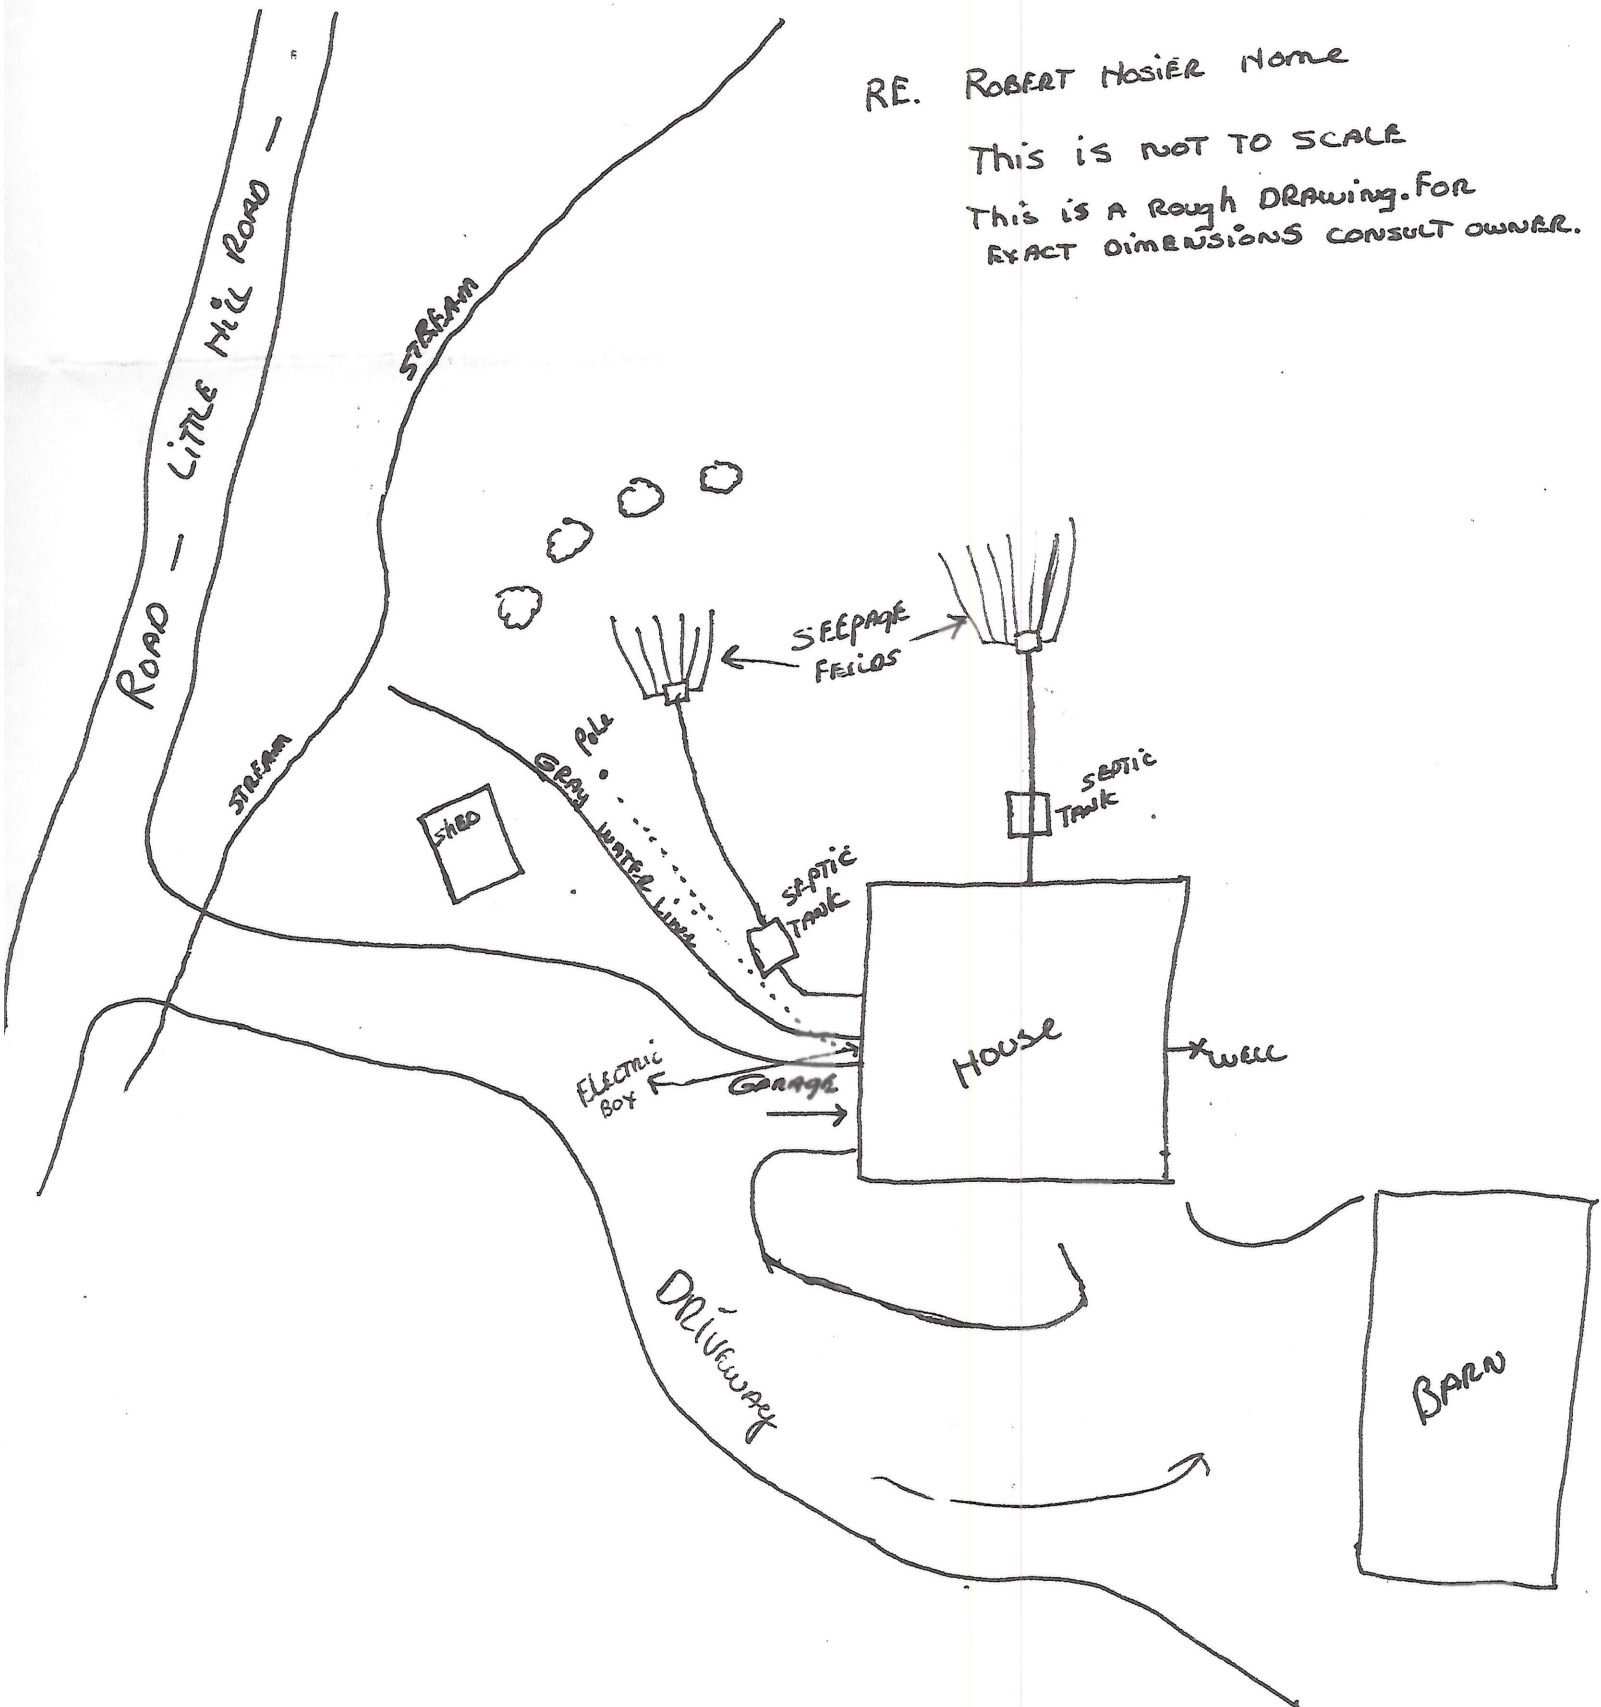 RE. ROBERT HOSIER Home
This is NOT TO SCALE
This is A Rough DRAwing. FOR
EXACT DIMENSIONS CONSULT OWNER.
ROAD — LITTLE HILL ROAD —
STREAM
SEEPAGE
FEILDS
Pole
GRAY WATER Lines
STREAM
SEPTIC
TANK
ShED
SEPTIC
TANK
HOUSE
WELL
ELECTRIC
BOX
GARAGE
DRIVEWAY
BARN